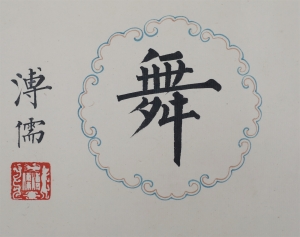 舞
溥儒